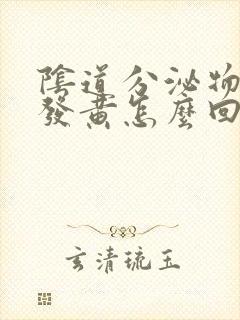 陰道分泌物
發黃怎麼回
玄清琉玉